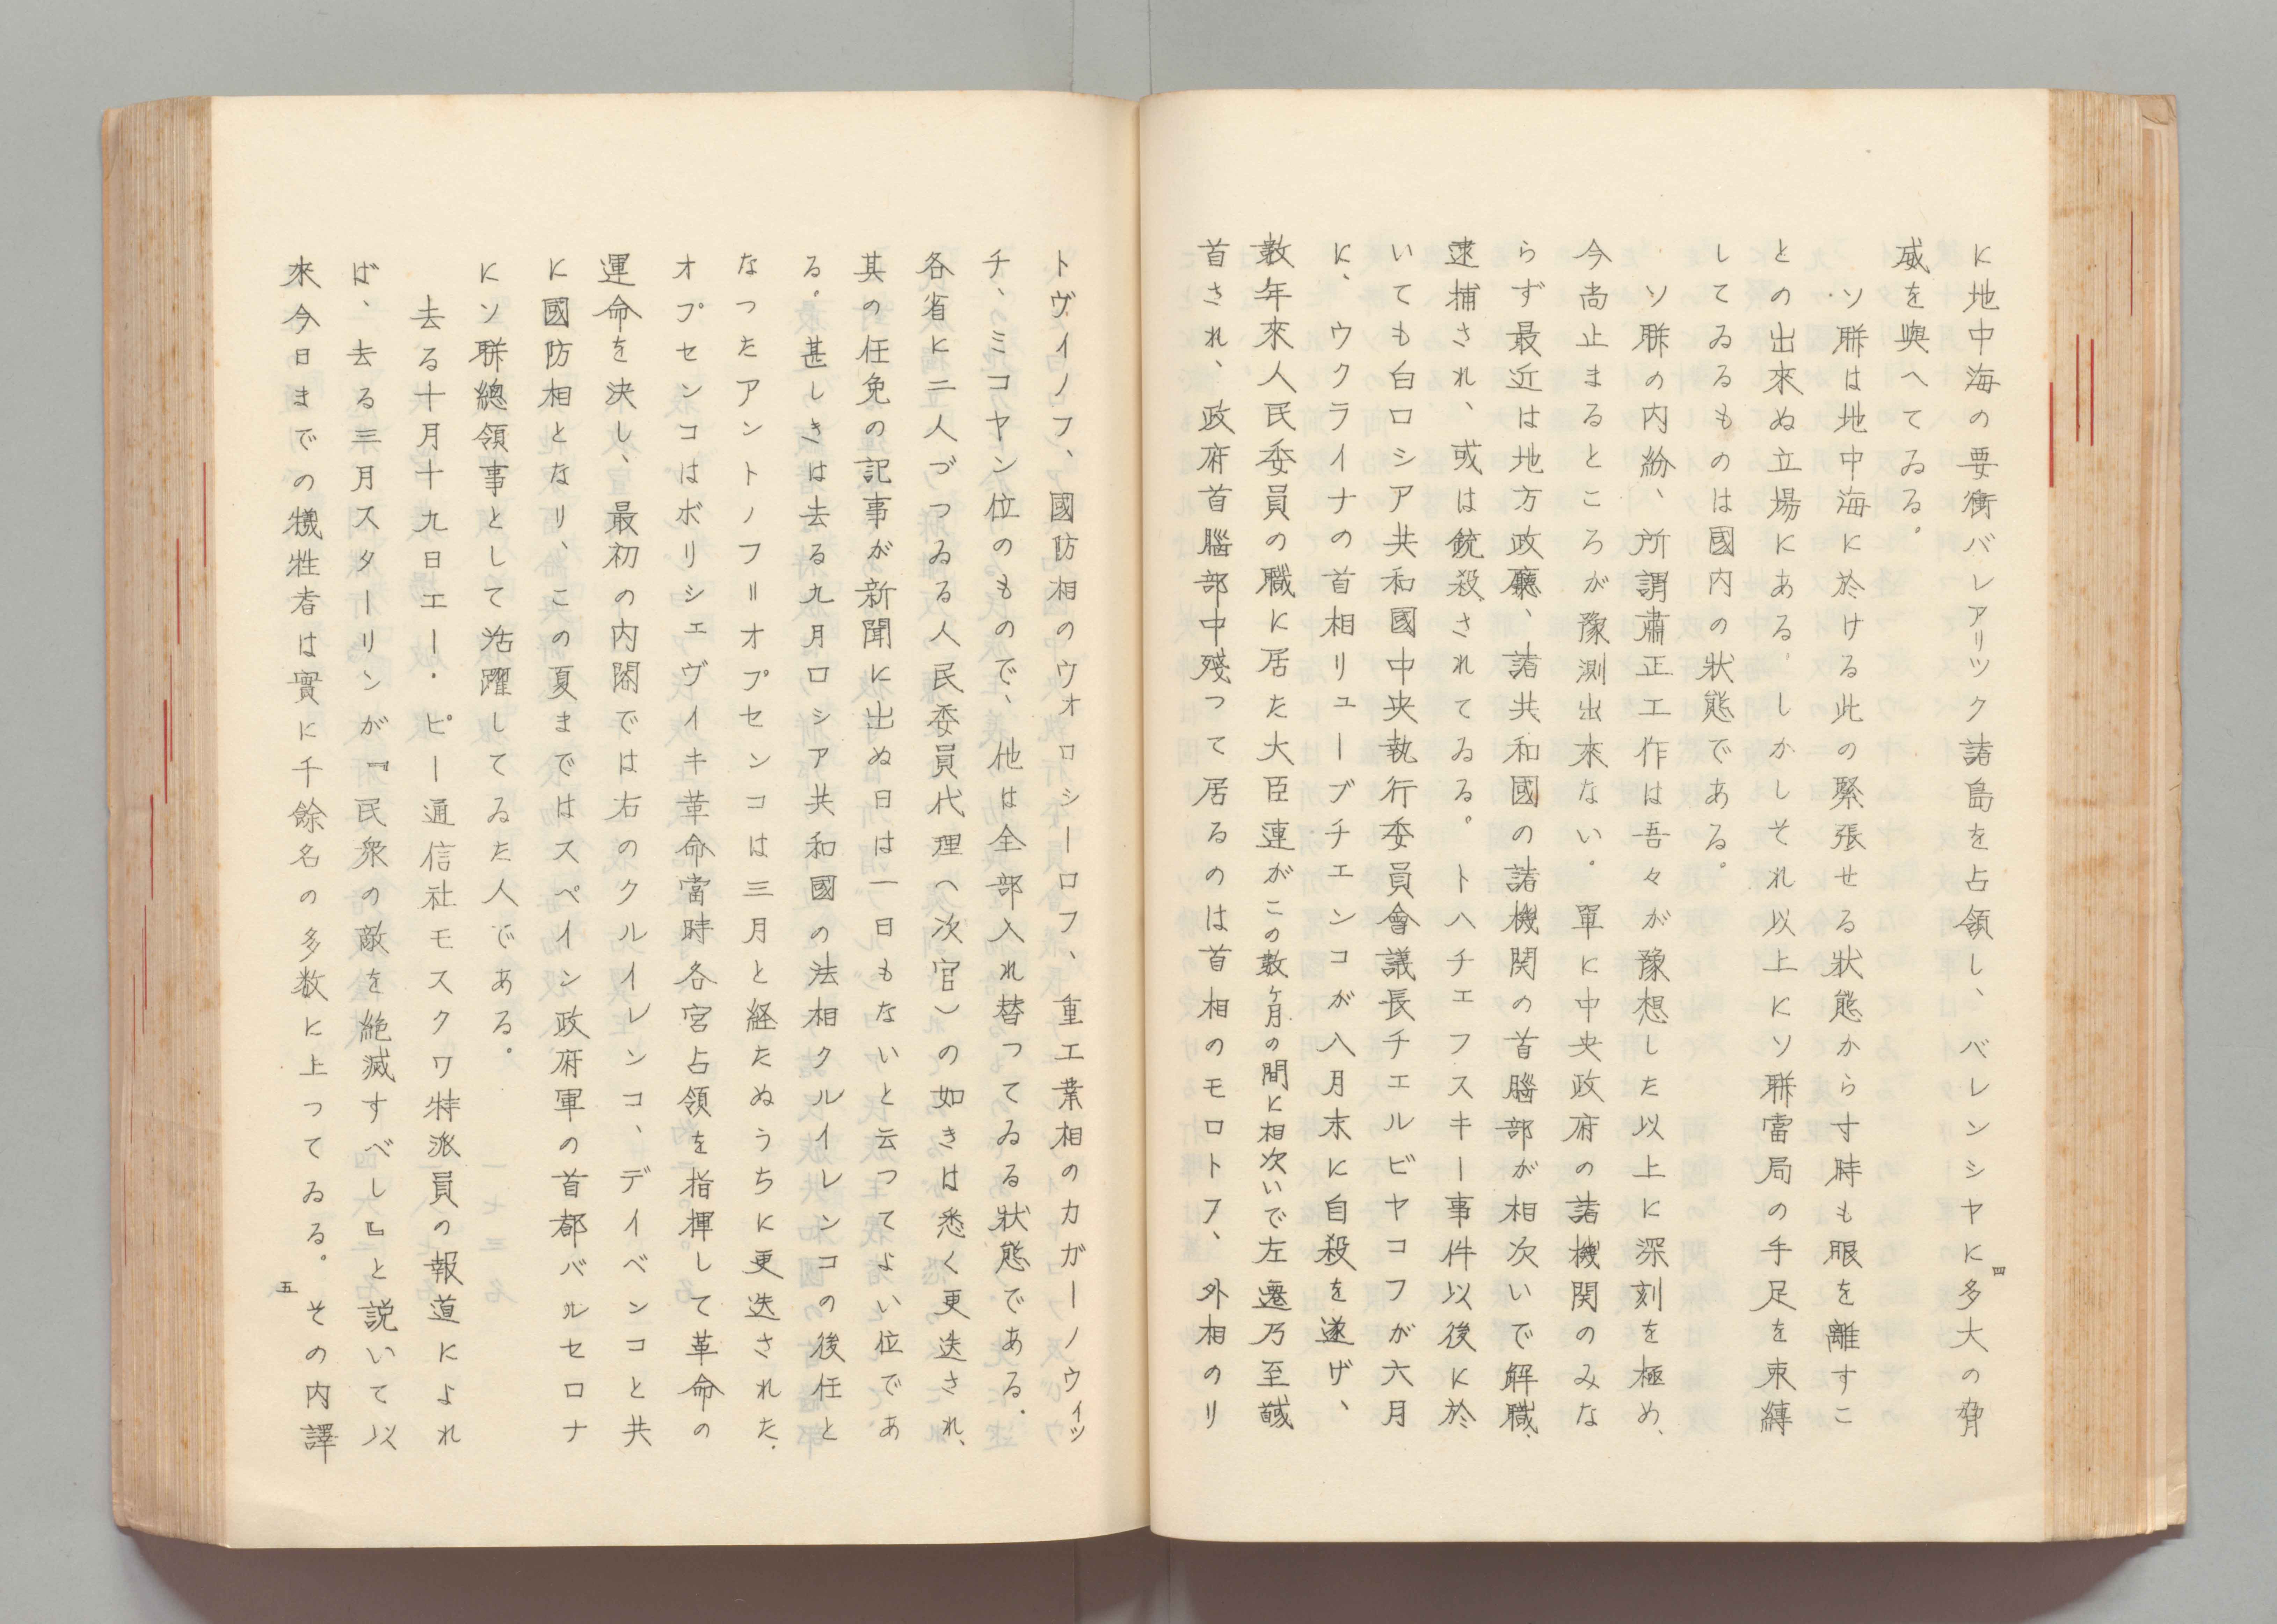 に地中海の要衝バレアリツク諸島を占領し、バレンシヤに多大の脅
威を與へてゐる。
ソ聯は地中海に於ける此の緊張せる狀態から寸時も眼を離すこ
との出來ぬ立場にある。しかしそれ以上にソ聯當局の手足を束縛
してゐるものは國内の狀態である。
ソ聯の内紛、所謂肅正工作は吾々が豫想した以上に深刻を極め、
今尚止まるところが豫測出來ない。單に中央政府の諸機関のみな
らず最近は地方政廳、諸共和國の諸機関の首腦部が相次いで解職、
逮捕され、或は銃殺されてゐる。トハチエフスキー事件以後に於
いても白ロシア共和國中央執行委員會議長チエルビヤコフが六月
に、ウクライナの首相リューブチエンコが八月末に自殺を遂げ、
数年來人民委員の職に居た大臣連がこの数ヶ月の間に相次いで左遷乃至馘
首され、政府首腦部中殘つて居るのは首相のモロトフ、外相のリ
四
トヴイノフ、國防相のウオロシーロフ、重工業相のカガーノウイツ
チ、ミコヤン位のもので、他は全部入れ替つてゐる狀態である。
各省に二人づつゐる人民委員代理（次官）の如きは悉く更迭され、
其の任免の記事が新聞に出ぬ日は一日もないと云つてよい位であ
る。甚しきは去る九月ロシア共和國の法相クルイレンコの後任と
なつたアントノフ＝オプセンコは三月と経たぬうちに更迭された。
オプセンコはボリシエヴイキ革命當時各宮占領を指揮して革命の
運命を決し、最初の内閣では右のクルイレンコ、デイベンコと共
に國防相となり、この夏まではスペイン政府軍の首都バルセロナ
にソ聯總領事として活躍してゐた人である。
去る十月十九日エー・ピー通信社モスクワ特派員の報道によれ
ば、去る三月スターリンが『民衆の敵を絶滅すべし』と説いて以
來今日までの犠牲者は實に千餘名の多数に上つてゐる。その内譯
五